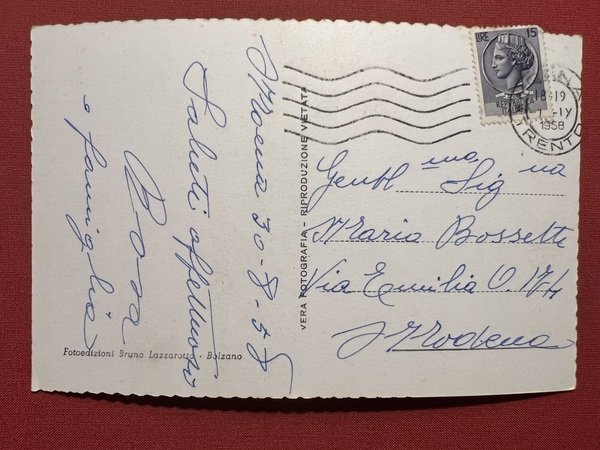 Moena 30-8-58
Saluti affettuosi
Rosa
e famiglia
Fotoedizioni Bruno Lazzarotto - Bolzano
VERA FOTOGRAFIA - RIPRODUZIONE VIETATA
LIRE 15
18-19
1958
TRENTO
Gentil ma Sig na
Maria Bossetti
Via Emilia O. 174
Modena